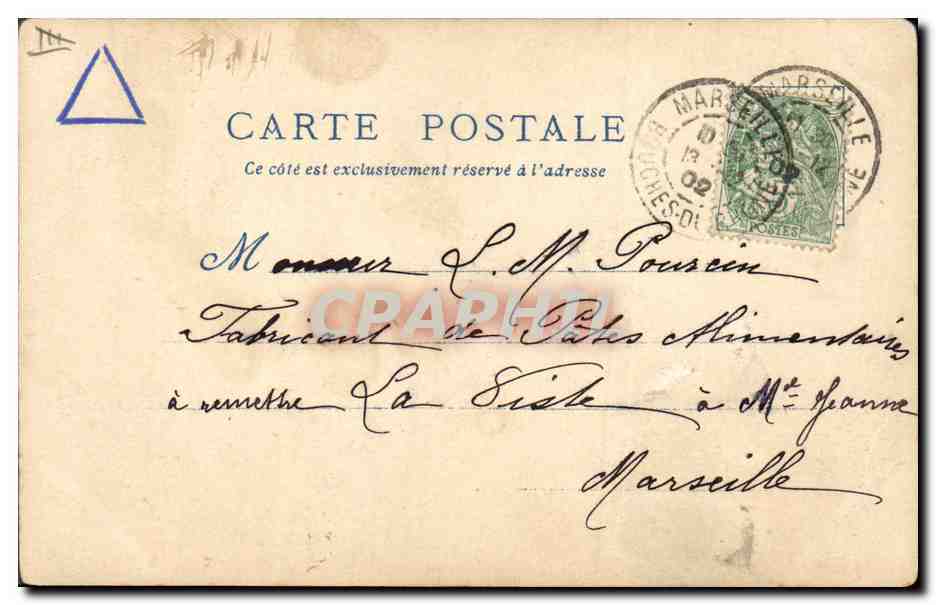 CARTE POSTALE
Ce côté est exclusivement réservé à l'adresse
MARSEILLE
BOUCHES-DU
02
MARSEILLE
POSTES
Monsieur L. M. Pourcin
CPARHIL
Fabricant de Pâtes Alimentaires
à remettre La Viste à Mle Jeanne
Marseille